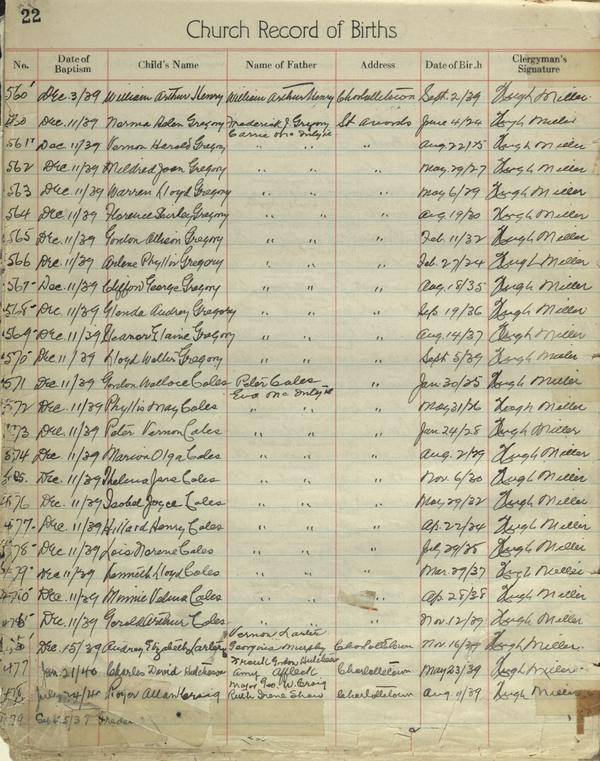 22
Church Record of Births
No. Date of Baptism Child's Name Name of Father Address Date of Birth Clergyman's Signature
560 Dec. 3/39 William Arthur Henry William Arthur Henry Charlottetown Sept. 2/39 Hugh Miller
Dec. 11/39 Norma Helen Gregory Frederick J. Gregory St Avards June 4/24 Hugh Miller
Carrie
561 Dec. 11/39 Vernon Harold Gregory " " " Aug 22/25 Hugh Miller
562 Dec. 11/39 Mildred Joan Gregory " " " May 29/27 Hugh Miller
563 Dec. 11/39 Warren Lloyd Gregory " " " May 6/29 Hugh Miller
564 Dec. 11/39 Florence Shirley Gregory " " " Aug. 19/30 Hugh Miller
565 Dec. 11/39 Gordon Allison Gregory " " " Feb. 11/32 Hugh Miller
566 Dec. 11/39 Arlene Phyllis Gregory " " " Feb. 27/34 Hugh Miller
567 Dec. 11/39 Clifton George Gregory " " " Aug. 18/35 Hugh Miller
568 Dec. 11/39 Glenda Audrey Gregory " " " Sep. 19/36 Hugh Miller
569 Dec. 11/39 Eleanor Elaine Gregory " " " Aug. 14/37 Hugh Miller
570 Dec 11/39 Lloyd Walter Gregory " " " Sept 5/39 Hugh Miller
571 Dec. 11/39 Gordon Wallace Coles Peter Coles " Jan 30/25 Hugh Miller
Eva
572 Dec. 11/39 Phyllis May Coles " " " May 31/26 Hugh Miller
573 Dec. 11/39 Peter Vernon Coles " " " Jan 24/28 Hugh Miller
574 Dec. 11/39 Marion Olga Coles " " " Aug. 2/29 Hugh Miller
Dec. 11/39 Thelma Jane Coles " " " Nov. 6/30 Hugh Miller
476 Dec. 11/39 Isabel Joyce Coles " " " May 29/32 Hugh Miller
477 Dec. 11/39 Willard Henry Coles " " " Ap. 22/34 Hugh Miller
478 Dec. 11/39 Lois Norene Coles " " " July 29/35 Hugh Miller
479 Dec 11/39 Kenneth Lloyd Coles " " " Mar. 29/37 Hugh Miller
Dec. 11/39 Minnie Velma Coles " " " Ap. 28/38 Hugh Miller
Dec. 11/39 Gerald Arthur Coles " " " Nov. 12/39 Hugh Miller
Vernon
Dec. 15/39 Audrey Elizabeth Georgina Murphy Charlottetown Nov. 16/39 Hugh Miller
Gordon
477 Jan. 21/40 Charles David Amy Affleck Charlottetown May 23/39 Hugh Miller
Major Geo. W. Craig
July 24/40 Roger Allan Craig Ruth Irene Shaw Charlottetown Aug. 11/39 Hugh Miller